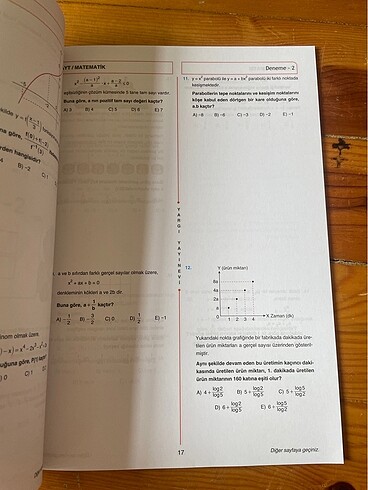 AYT / MATEMATİK
Deneme – 2
eşitsizliğinin çözüm kümesinde 5 tane tam sayı vardır.
Buna göre, a nın pozitif tam sayı değeri kaçtır?
A) 3 B) 4 C) 5 D) 6 E) 7
a ve b sıfırdan farklı gerçel sayılar olmak üzere,
x² + ax + b = 0
denkleminin kökleri a ve 2b dir.
Buna göre, a + 1/b kaçtır?
A) -1/2 B) -3/2 C) 0 D) 1/2 E) -1
YARGI YAYINEVİ
11. y = x² parabolü ile y = a + bx² parabolü iki farklı noktada
kesişmektedir.
Parabollerin tepe noktalarını ve kesişim noktalarını
köşe kabul eden dörtgen bir kare olduğuna göre,
a.b kaçtır?
A) –8 B) –6 C) –3 D) –2 E) –1
12.
Y (ürün miktarı)
8a
4a
2a
a
0 1 2 3 4 X Zaman (dk)
Yukarıdaki nokta grafiğinde bir fabrikada dakikada üre-
tilen ürün miktarları a gerçel sayısı üzerinden gösteril-
miştir.
Aynı şekilde devam eden bu üretimin kaçıncı daki-
kasında üretilen ürün miktarı, 1. dakikada üretilen
ürün miktarının 160 katına eşit olur?
A) 4 + log2/log5 B) 5 + log2/log5 C) 5 + log5/log2
D) 6 + log2/log5 E) 6 + log5/log2
17
Diğer sayfaya geçiniz.